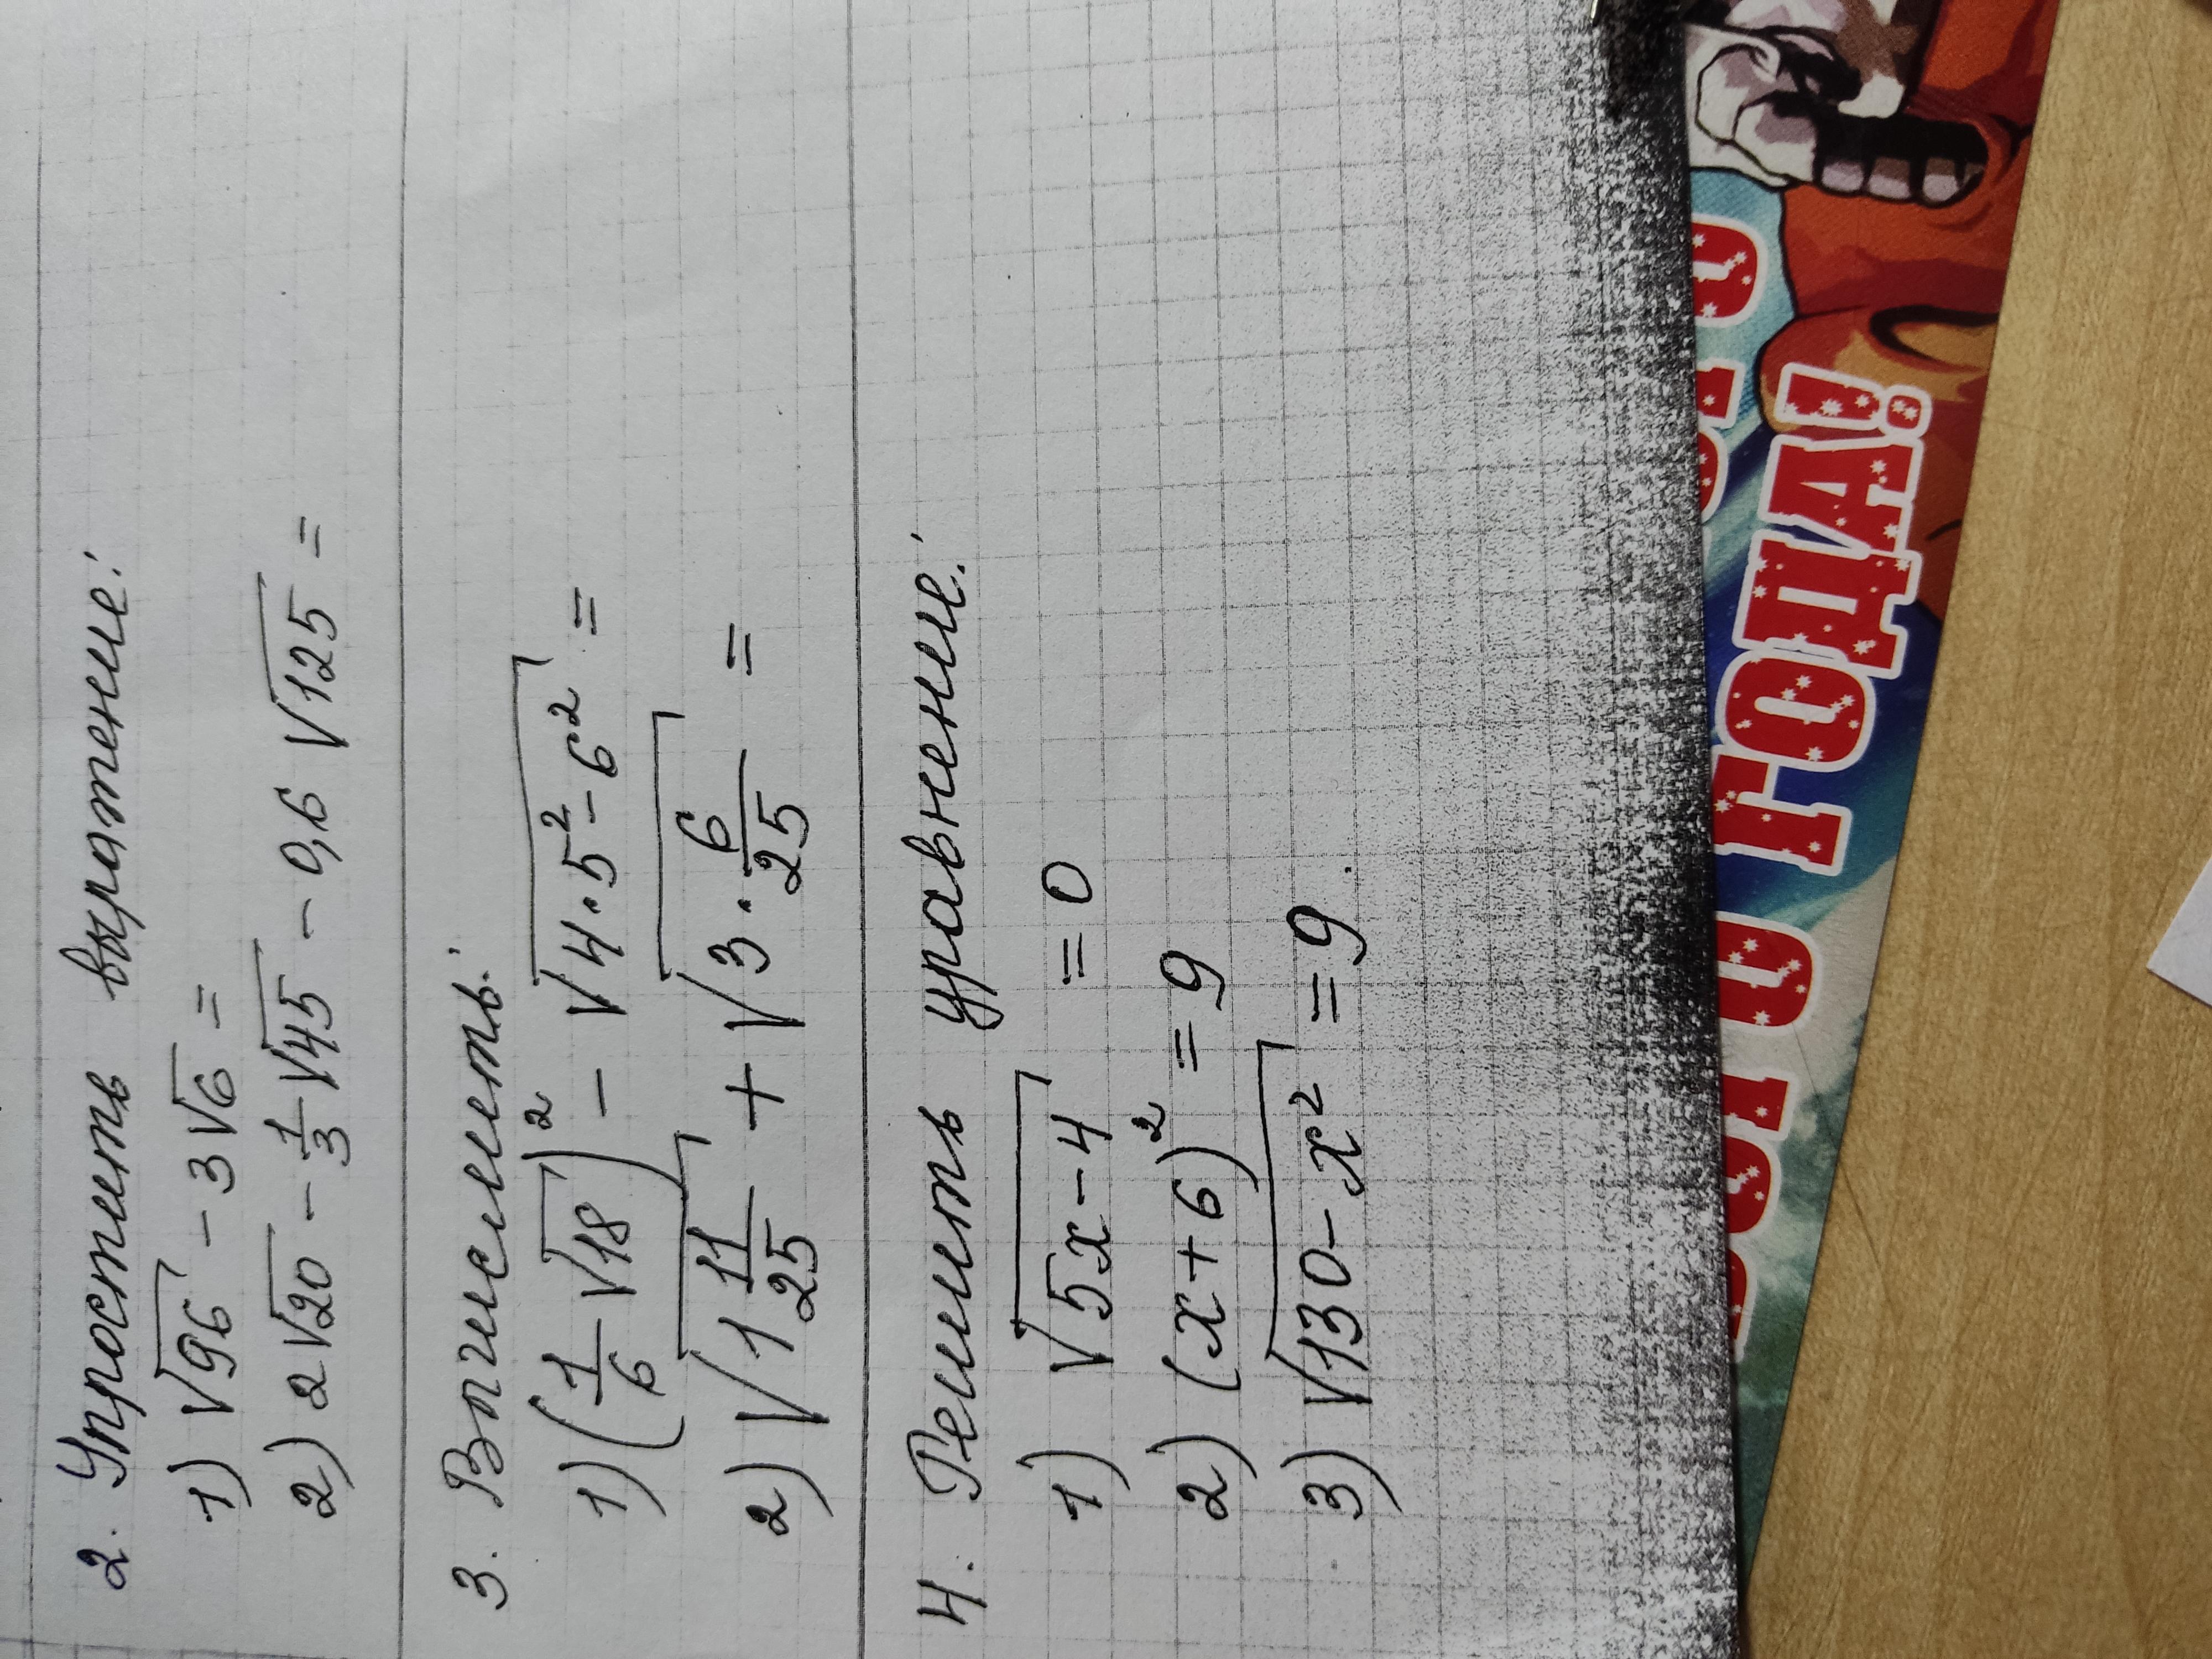 2. Упростить выражение:
1) √96 - 3√6 =
2) 2√20 - 1/3 √45 - 0,6 √125 =
3. Вычислить:
1) (1/6 √18)² - √(4·5² - 6²) =
2) √(1 11/25) + √(3 · 6/25) =
4. Решить уравнение:
1) √(5x - 4) = 0
2) (x + 6)² = 9
3) √(130 - x²) = 9.
ГОДА!